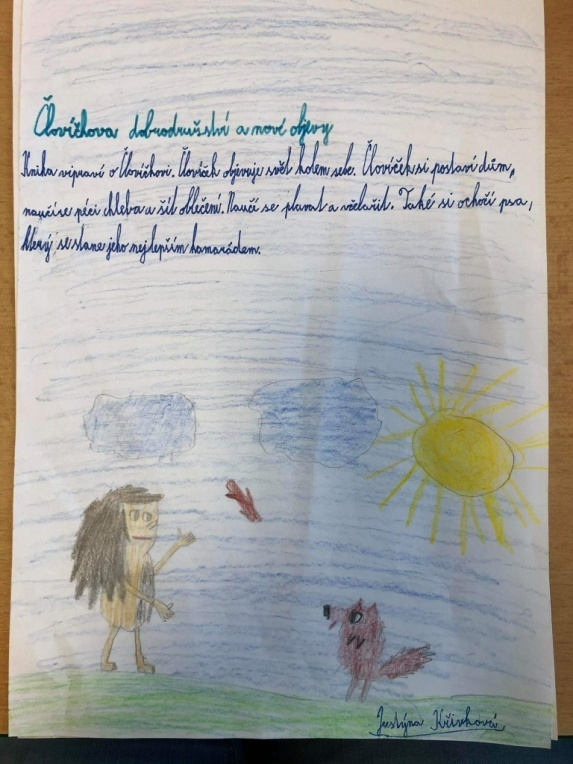 Človíčkova dobrodružství a nové objevy
Kniha vipraví o Človíčkovi. Človíček objevuje svět kolem sebe. Človíček si postaví dům,
naučí se péci chleba a šít oblečení. Naučí se plavat a včelařit. Také si ochočí psa,
který se stane jeho nejlepším kamarádem.
Justýna Křivková